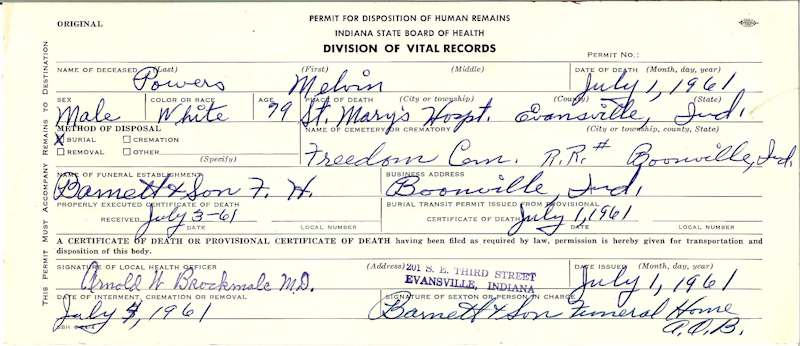 ORIGINAL
PERMIT FOR DISPOSITION OF HUMAN REMAINS
INDIANA STATE BOARD OF HEALTH
DIVISION OF VITAL RECORDS
PERMIT NO.:
THIS PERMIT MUST ACCOMPANY REMAINS TO DESTINATION
NAME OF DECEASED (Last) (First) (Middle) DATE OF DEATH (Month, day, year)
Powers Melvin July 1, 1961
SEX COLOR OR RACE AGE PLACE OF DEATH (City or township) (County) (State)
Male White 79 St. Mary's Hospt. Evansville, Ind.
METHOD OF DISPOSAL NAME OF CEMETERY OR CREMATORY (City or township, county, State)
X BURIAL CREMATION
REMOVAL OTHER (Specify)
Freedom Cem. R.R.# Boonville, Ind.
NAME OF FUNERAL ESTABLISHMENT BUSINESS ADDRESS
Barnett & Son F. H. Boonville, Ind.
PROPERLY EXECUTED CERTIFICATE OF DEATH BURIAL TRANSIT PERMIT ISSUED FROM PROVISIONAL
RECEIVED July 3-61 CERTIFICATE OF DEATH July 1, 1961
DATE LOCAL NUMBER DATE LOCAL NUMBER
A CERTIFICATE OF DEATH OR PROVISIONAL CERTIFICATE OF DEATH having been filed as required by law, permission is hereby given for transportation and
disposition of this body.
SIGNATURE OF LOCAL HEALTH OFFICER (Address) 201 S. E. THIRD STREET DATE ISSUED (Month, day, year)
Arnold W Brockmole M.D. EVANSVILLE, INDIANA July 1, 1961
DATE OF INTERMENT, CREMATION OR REMOVAL SIGNATURE OF SEXTON OR PERSON IN CHARGE
July , 1961 Barnett & Son Funeral Home
A.O.B.
SBH